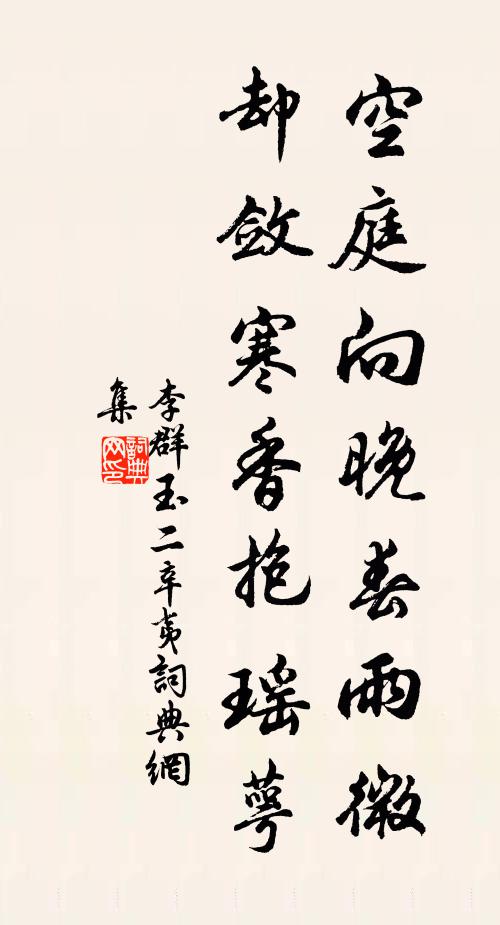 空庭向晚春雨微
却斂寒香抱瑶萼
李群玉二辛夷詞典網
集
詞典網印